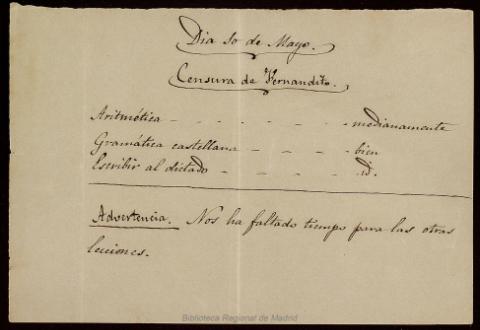 Dia 10 de Mayo.
Censura de Fernandito.
Aritmética - - - - - - medianamente
Gramática castellana - - - - bien
Escribir al dictado - - - - - id.
Advertencia. Nos ha faltado tiempo para las otras
lecciones.
Biblioteca Regional de Madrid